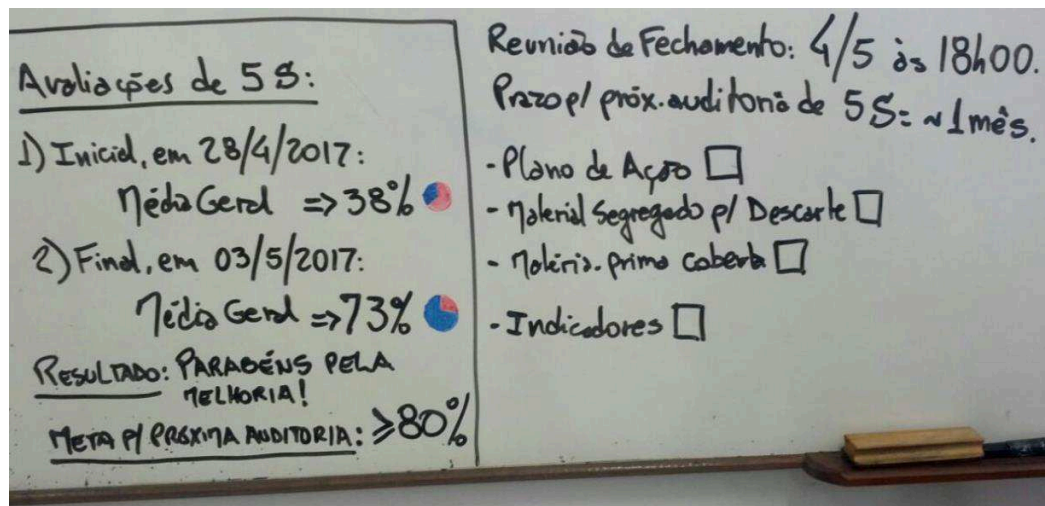 Avaliações de 5S:
1) Inicial, em 28/4/2017:
Média Geral => 38%
2) Final, em 03/5/2017:
Média Geral => 73%
RESULTADO: PARABÉNS PELA
MELHORIA!
META P/ PRÓXIMA AUDITORIA: ≥80%
Reunião de Fechamento: 4/5 às 18h00.
Prazo p/ próx. auditoria de 5S: ~1mês.
- Plano de Ação ☐
- Material Segregado p/ Descarte ☐
- Matéria-prima coberta ☐
- Indicadores ☐